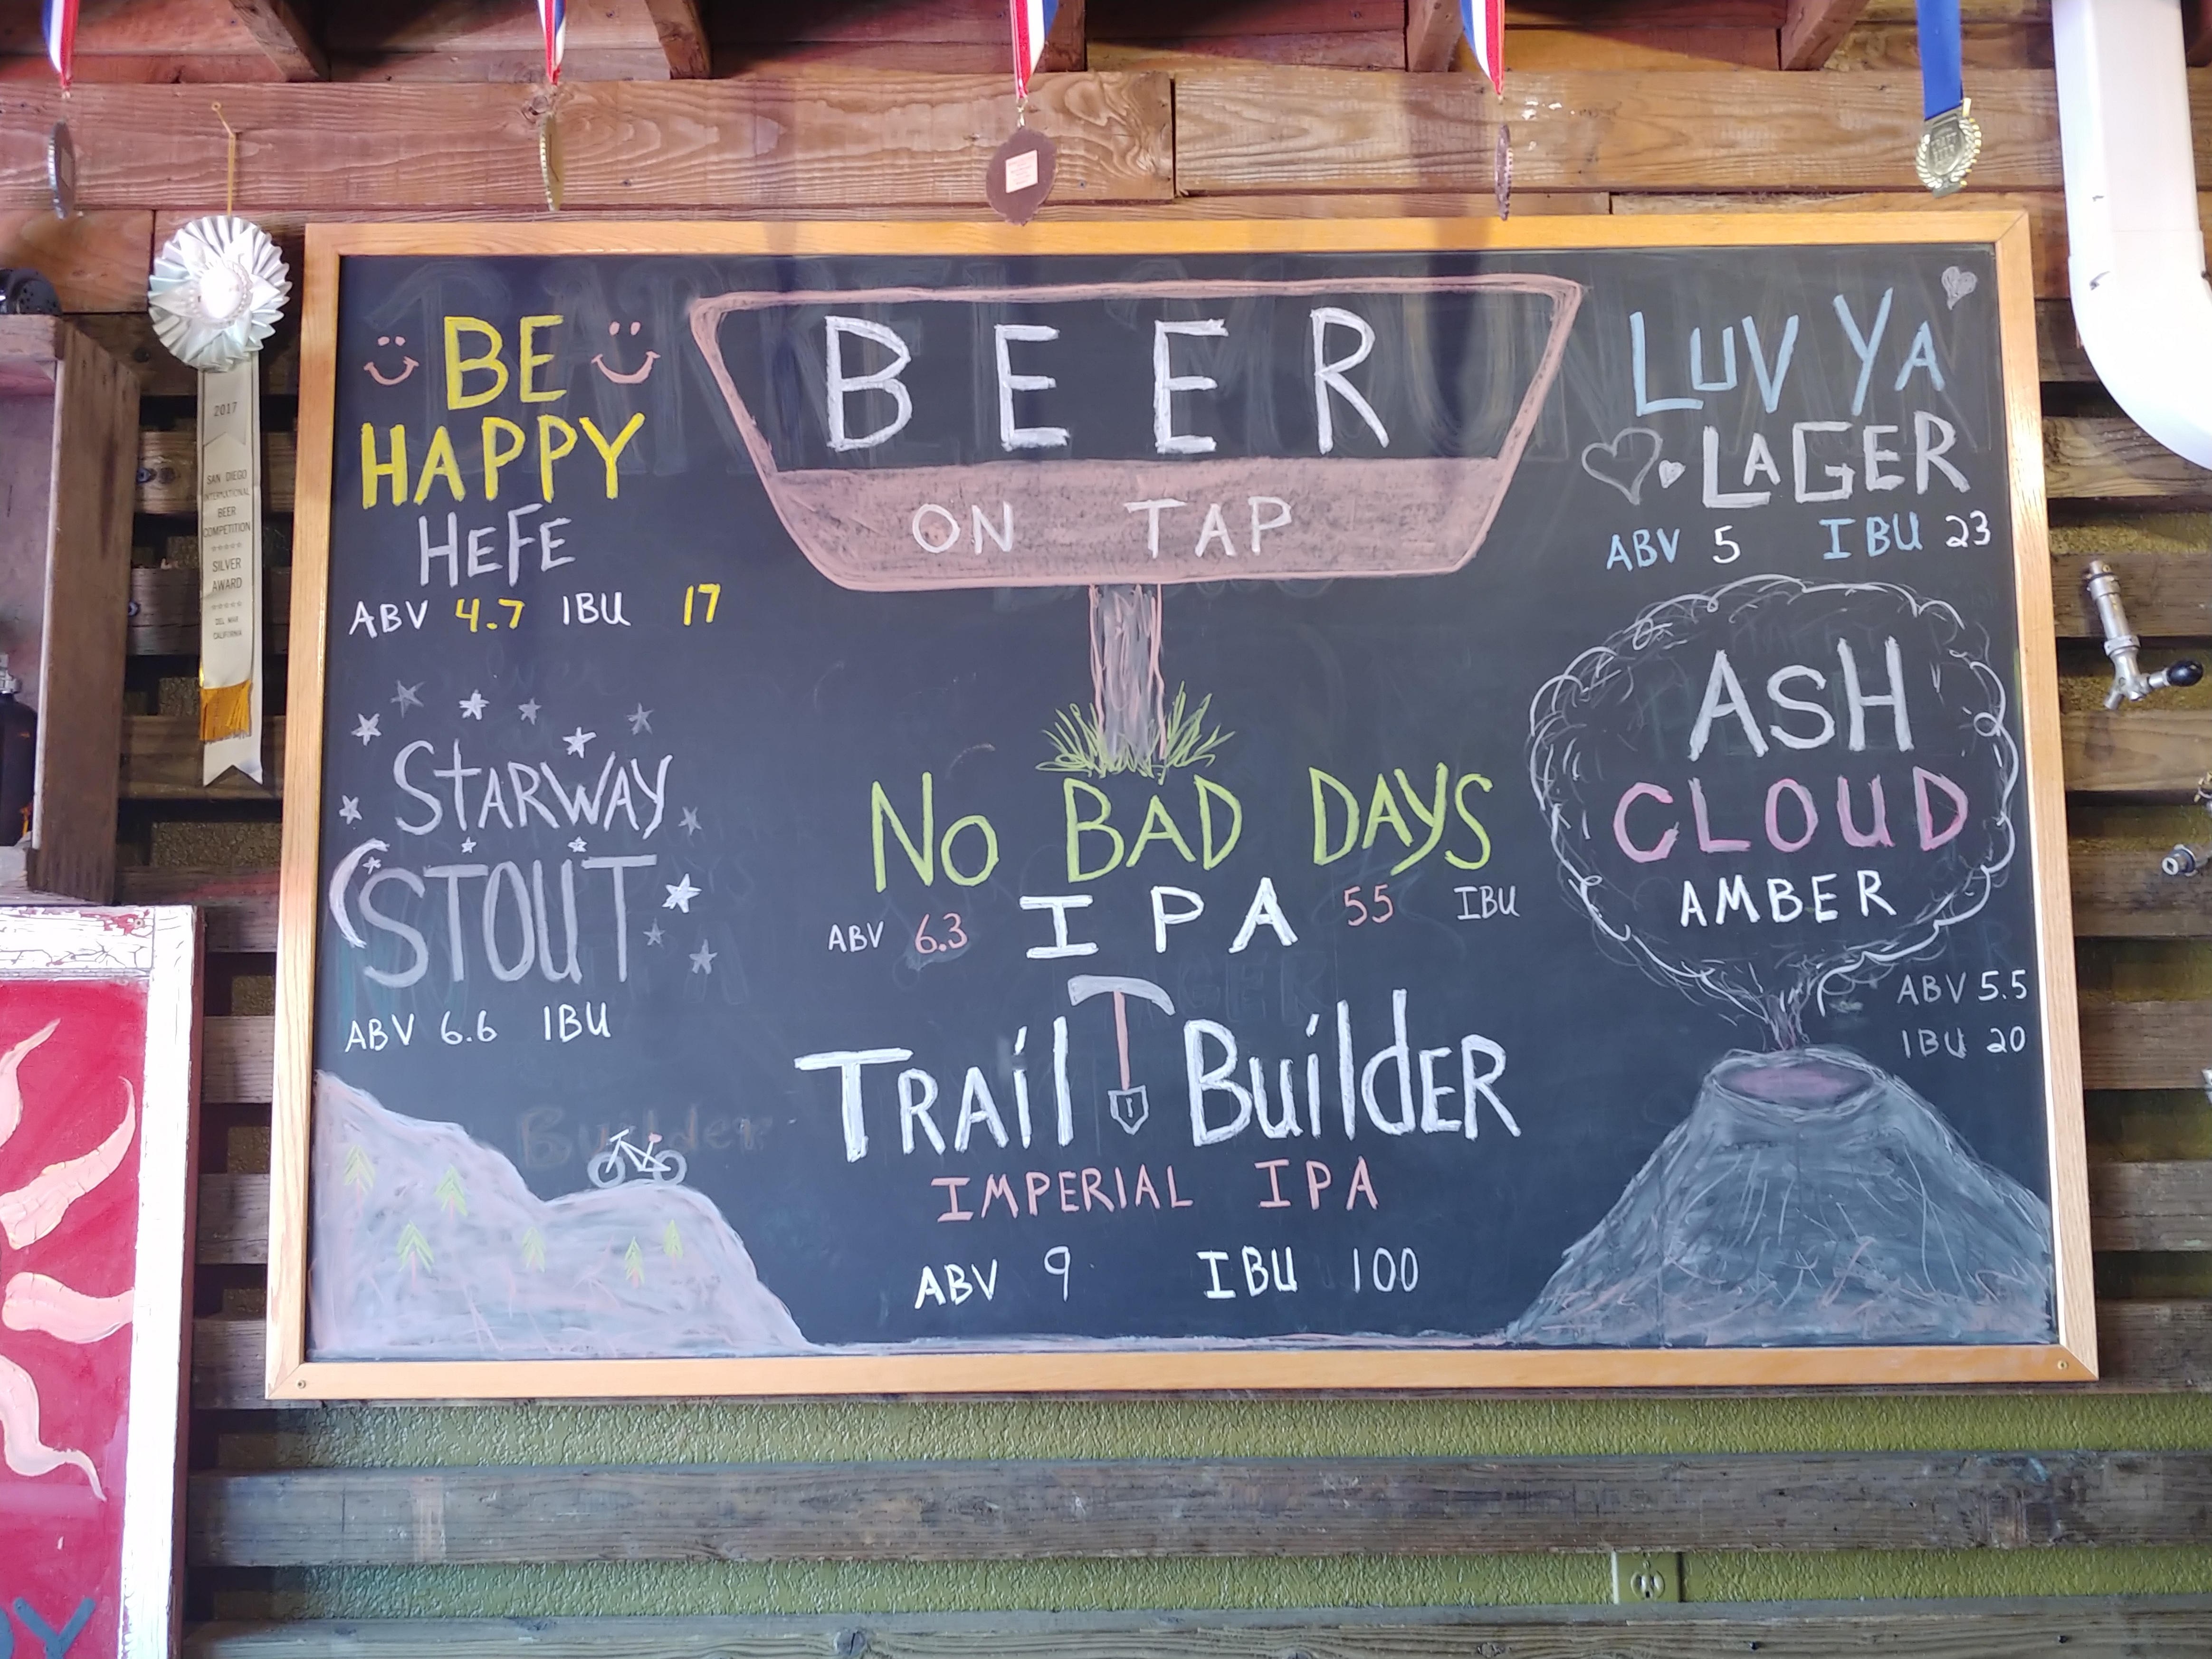 BEER
ON TAP
BE
HAPPY
HEFE
ABV 4.7 IBU 17
STARWAY
STOUT
ABV 6.6 IBU
NO BAD DAYS
IPA
ABV 6.3 55 IBU
TRAil BuildER
IMPERIAL IPA
ABV 9 IBU 100
LUV YA
LAGER
ABV 5 IBU 23
ASH
CLOUD
AMBER
ABV 5.5
IBU 20
2017
SAN DIEGO
INTERNATIONAL
BEER
COMPETITION
SILVER
AWARD
DEL MAR
CALIFORNIA
Builder